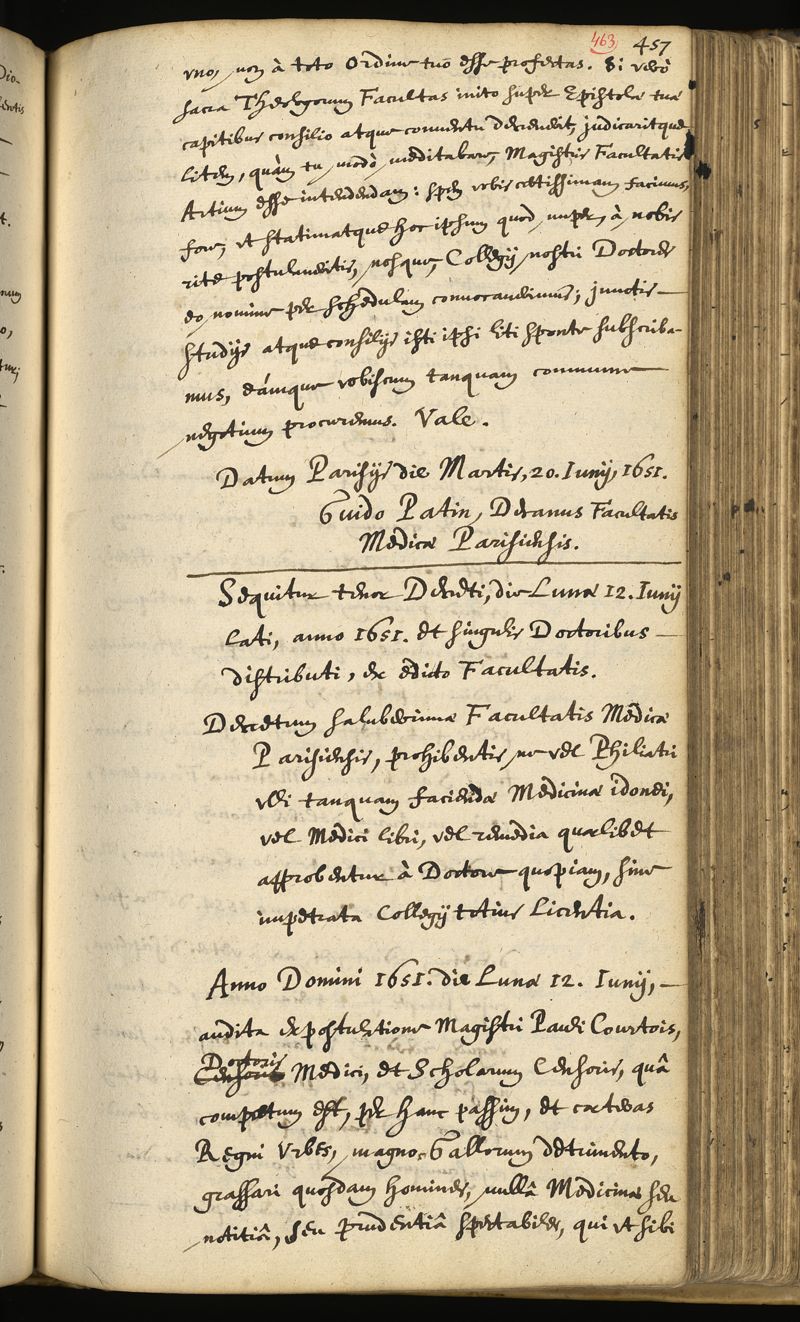 463 457
vno, non à toto Ordine tuo esse profectas. Si verò
sacra Theologorum Facultas inito super Epistolæ tuæ
capitibus consilio atque conventu decreverit, judicaritque
litem, quàm tu modò meditabare, Magistris Facultatis
Artium esse intendendam: spem vobis certissimam facimus,
fore, vt statim atque hoc ipsum quod nuper, à nobis
rite postulaveritis, nosque, Collegij nostri Doctores
eo nomine per schedulam convocaverimus; junctis
studijs atque consilijs isti ipsi liti sponte subscriba-
mus, eámque vobiscum tanquam commune
negotium procuremus. Vale.
Datum Parisijs die Martis, 20. Iunij, 1651.
Guido Patin, Decanus Facultatis
Medicæ Parisiensis.
Sequitur tenor Decreti, die Lunæ 12. Iunij
lati, anno 1651. et singulis Doctoribus
distributi, ex edicto Facultatis.
Decretum saluberrimæ Facultatis Medicæ
Parisiensis, prohibentis, ne vel Philiatri
vlli tanquam faciendæ Medicinæ idonei,
vel Medici libri, vel remedia quælibet
approbentur à Doctore quopiam, sine
impetrata Collegij totius Licentia.
Anno Domini 1651. die Lunæ 12. Iunij,
audita expostulatione Magistri Pauli Courtois,
Doctoris
Censoris Medici, et Scholarum Censoris, quâ
compertum est, per hanc passim, et cæteras
Regni Vrbes, magno Gallorum detrimento,
grassari quosdam homines, nullâ Medicinæ seu
notitiâ, seu prudentiâ spectabiles, qui vt sibi